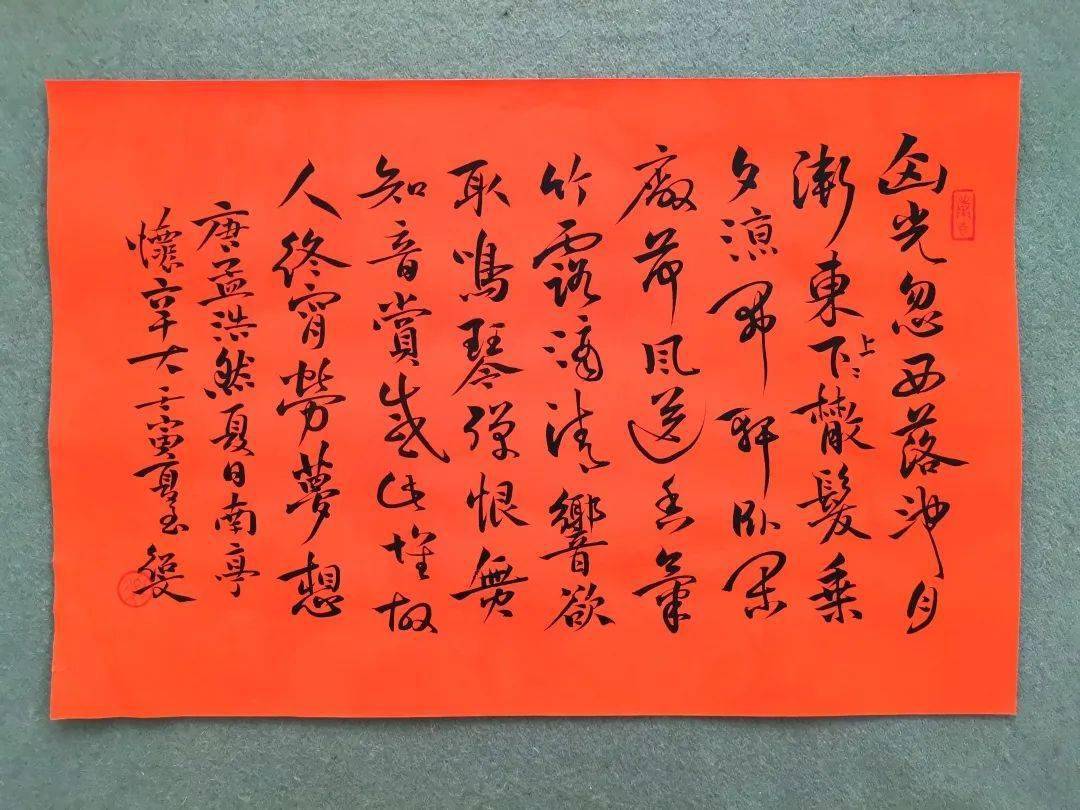 山光忽西落池月
漸東下上散髮乘
夕涼開軒臥閑
廠荷風送香氣
竹露滴清響欲
取鳴琴彈恨無
知音賞感此懷故
人終宵勞夢想
唐孟浩然夏日南亭
懷辛大壬寅夏至